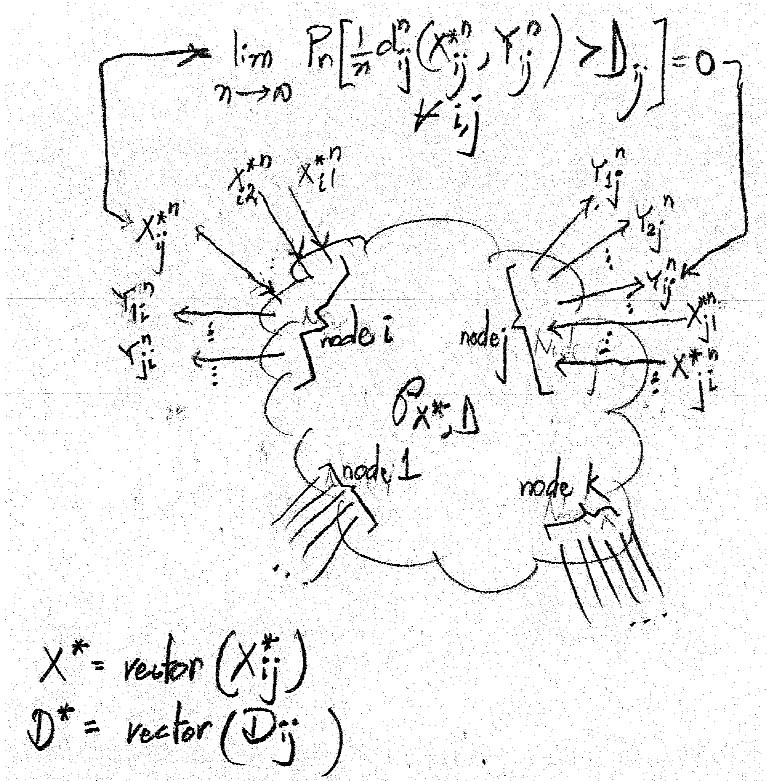 lim n→∞ Pn[1/n d^n_ij(X*^n_ij, Y^n_ij) > D_ij] = 0
∀ i,j
X*^n_i2 X*^n_i1
X*^n_ij
Y^n_1i
Y^n_ji
node i
Y^n_1j
Y^n_2j
Y^n_ij
X*^n_j1
X*^n_ji
node j
P_X*,D
node 1
node k
X* = vector(X*_ij)
D* = vector(D_ij)